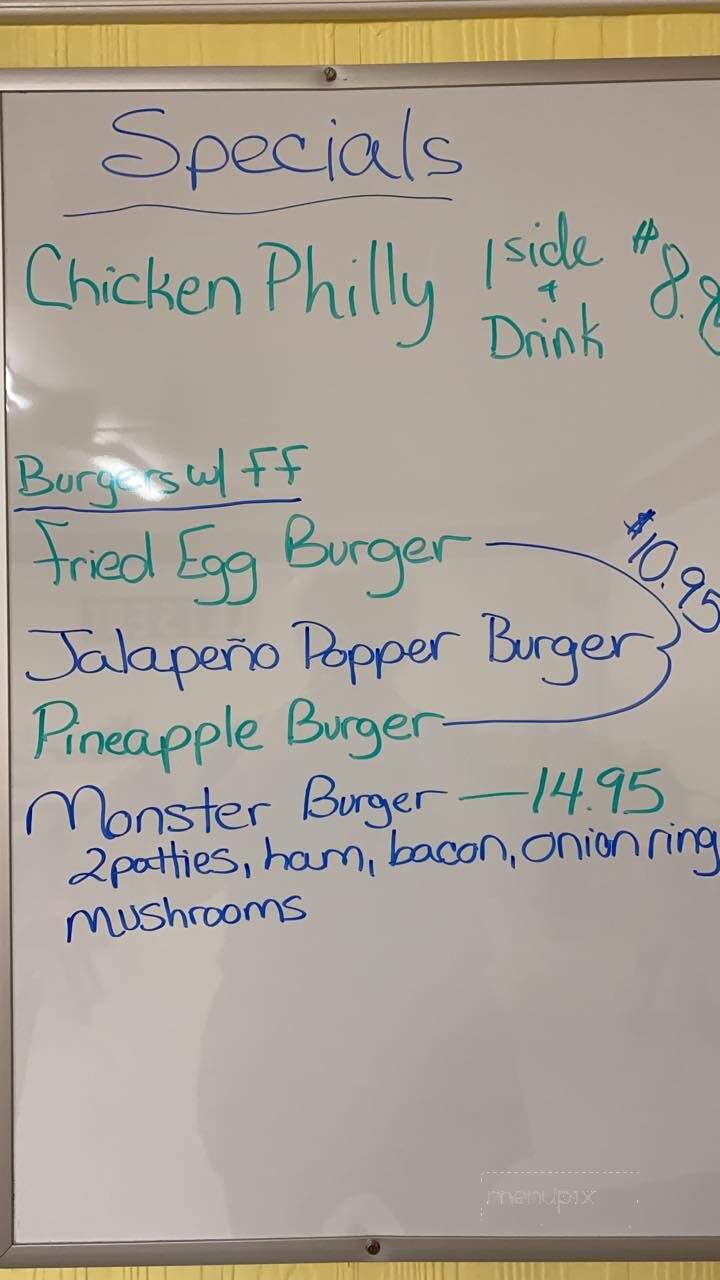 Specials
Chicken Philly 1 side + Drink $8.
Burgers w/ FF
Fried Egg Burger
$10.95
Jalapeño Popper Burger
Pineapple Burger
Monster Burger — 14.95
2 patties, ham, bacon, onion ring
mushrooms
menupix